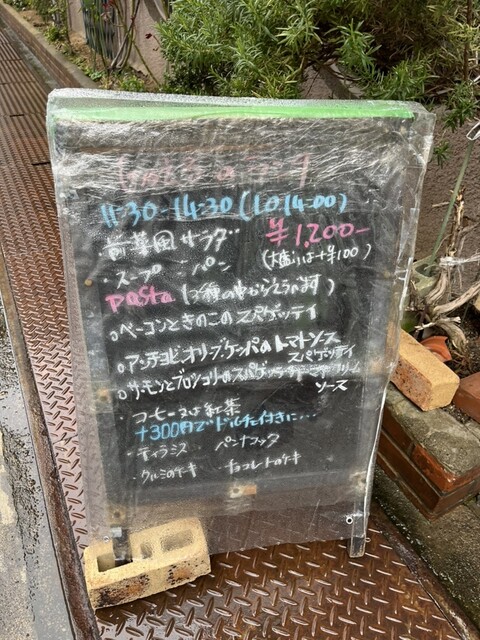 ランチ
11:30-14:30(LO14:00)
・前菜風サラダ ¥1,200-
・スープ ・パン (大盛りは+¥100)
pasta (3種の中からえらべます)
○ベーコンときのこのスパゲッティ
○アンチョビオリーブケッパのトマトソース
スパゲッティ
○サーモンとブロッコリのスパゲッティ クリーム
ソース
・コーヒー又は紅茶
+300円でドルチェ付きに...
・ティラミス ・パンナコッタ
・クルミのケーキ ・チョコレートのケーキ